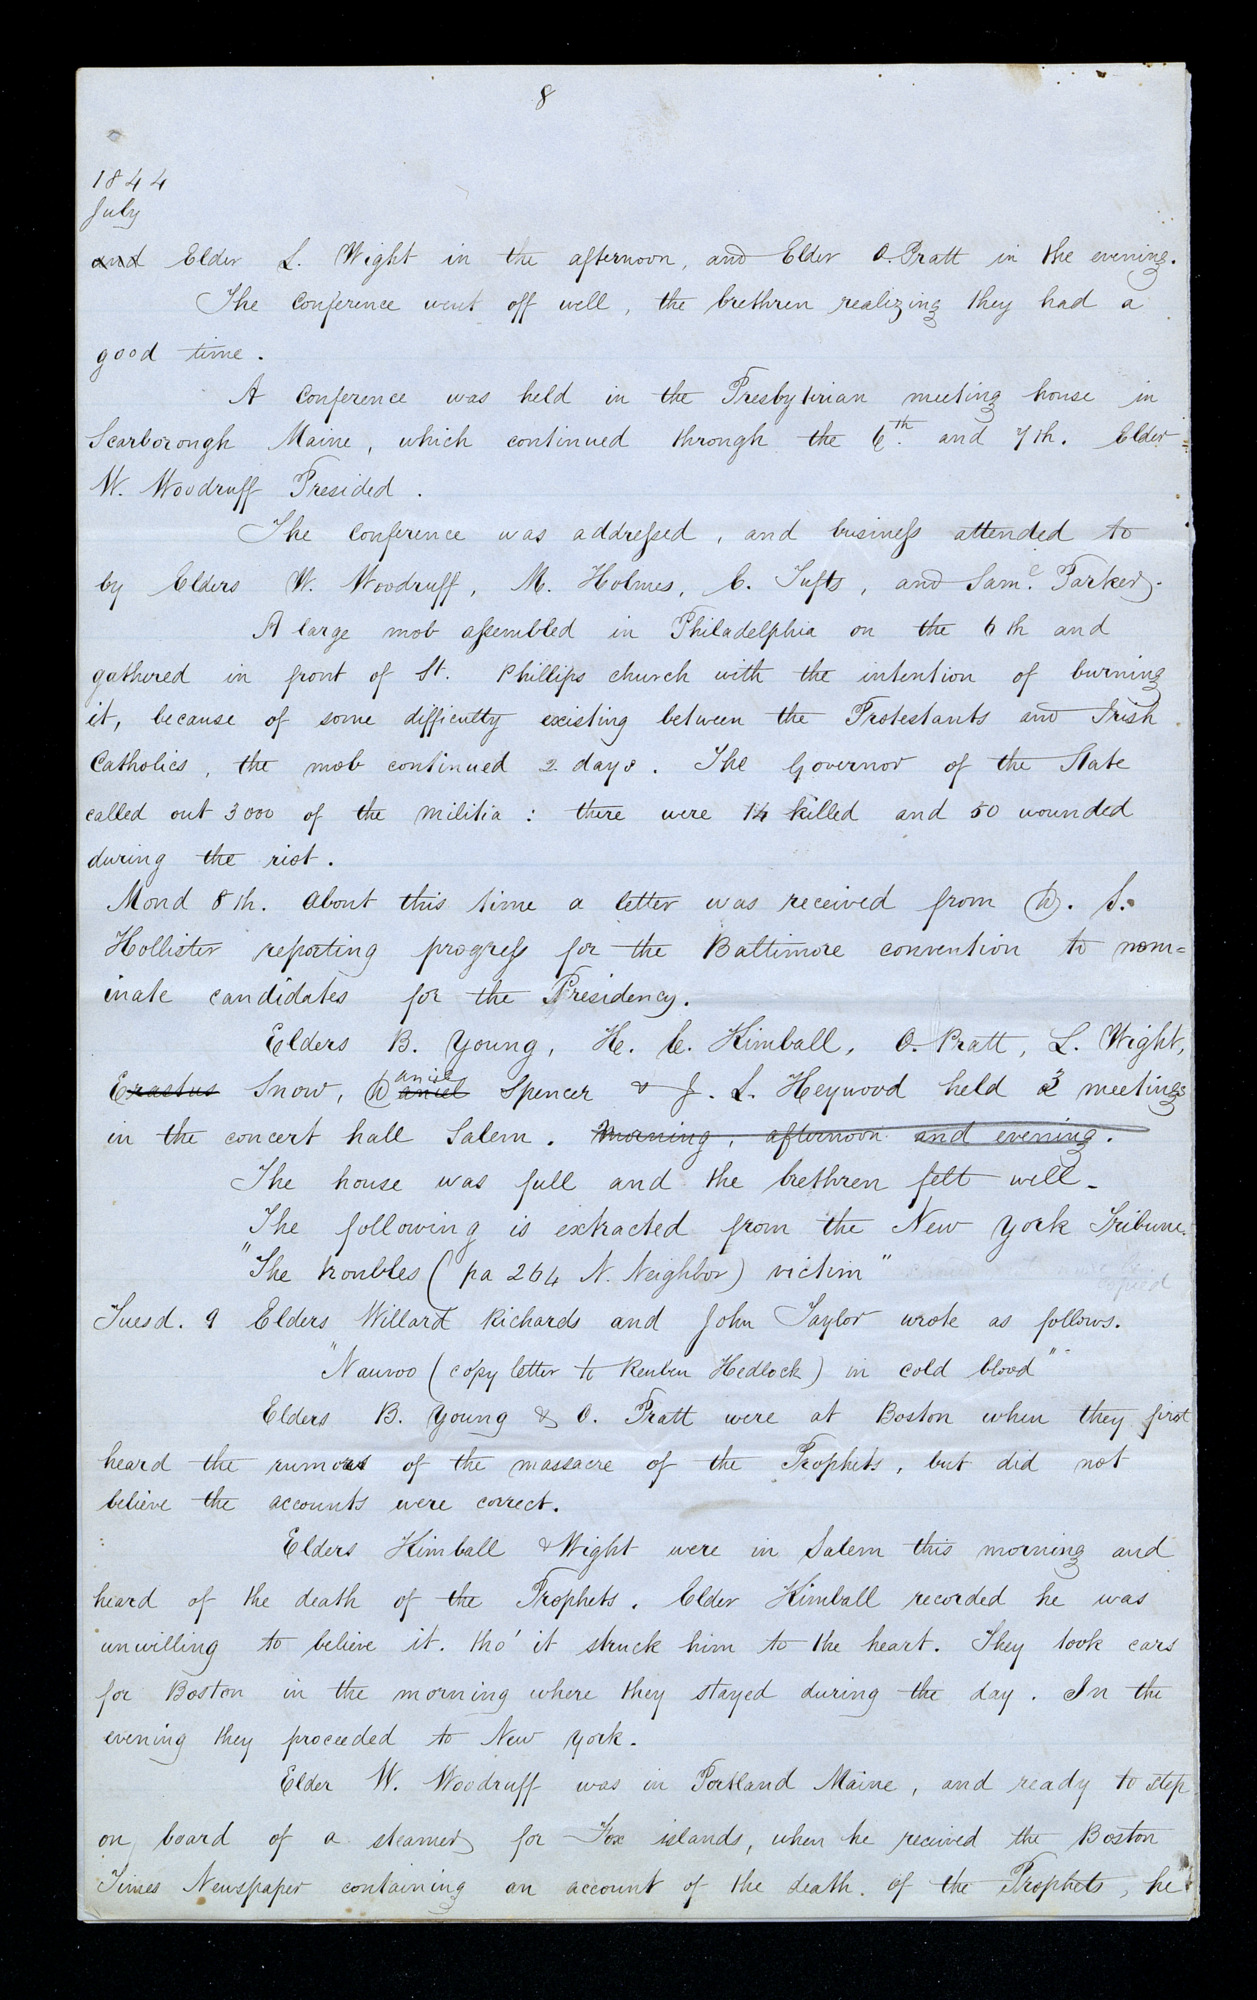 8
1844
July
and Elder L. Wight in the afternoon, and Elder O. Pratt in the evening.
The Conference went off well, the brethren realizing they had a
good time.
A Conference was held in the Presbytirian meeting house in
Scarborough Maine, which continued through the 6th. and 7th. Elder
W. Woodruff Presided.
The Conference was addressed, and business attended to
by Elders W. Woodruff, M. Holmes, E. Tufts, and Saml. Parker.
A large mob assembled in Philadelphia on the 6th and
gathered in front of St. Phillips church with the intention of burning
it, because of some difficulty existing between the Protestants and Irish
Catholics, the mob continued 2 days. The Governor of the State
called out 3000 of the militia: there were 14 killed and 50 wounded
during the riot.
Mond 8th. About this time a letter was received from D. S.
Hollister reporting progress for the Baltimore convention to nom=
inate candidates for the Presidency.
Elders B. Young, H. C. Kimball, O. Pratt, L. Wight,
aniel
Erastus Snow, D aniel Spencer & J. L. Heywood held 3 meetings
in the concert hall Salem. Morning, afternoon and evening.
The house was full and the brethren felt well.
The following is extracted from the New York Tribune.
"The troubles (pa 264 N. Neighbor) victim"
Tuesd. 9 Elders Willard Richards and John Taylor wrote as follows.
"Nauvoo (copy letter to Reuben Hedlock) in cold blood"
Elders B. Young & O. Pratt were at Boston when they first
heard the rumors of the massacre of the Prophets, but did not
believe the accounts were correct.
Elders Kimball & Wight were in Salem this morning and
heard of the death of the Prophets. Elder Kimball recorded he was
unwilling to believe it. tho' it struck him to the heart. They took cars
for Boston in the morning where they stayed during the day. In the
evening they proceeded to New York.
Elder W. Woodruff was in Portland Maine, and ready to step
on board of a steamer for Fox islands, when he received the Boston
Times Newspaper containing an account of the death of the Prophets, he